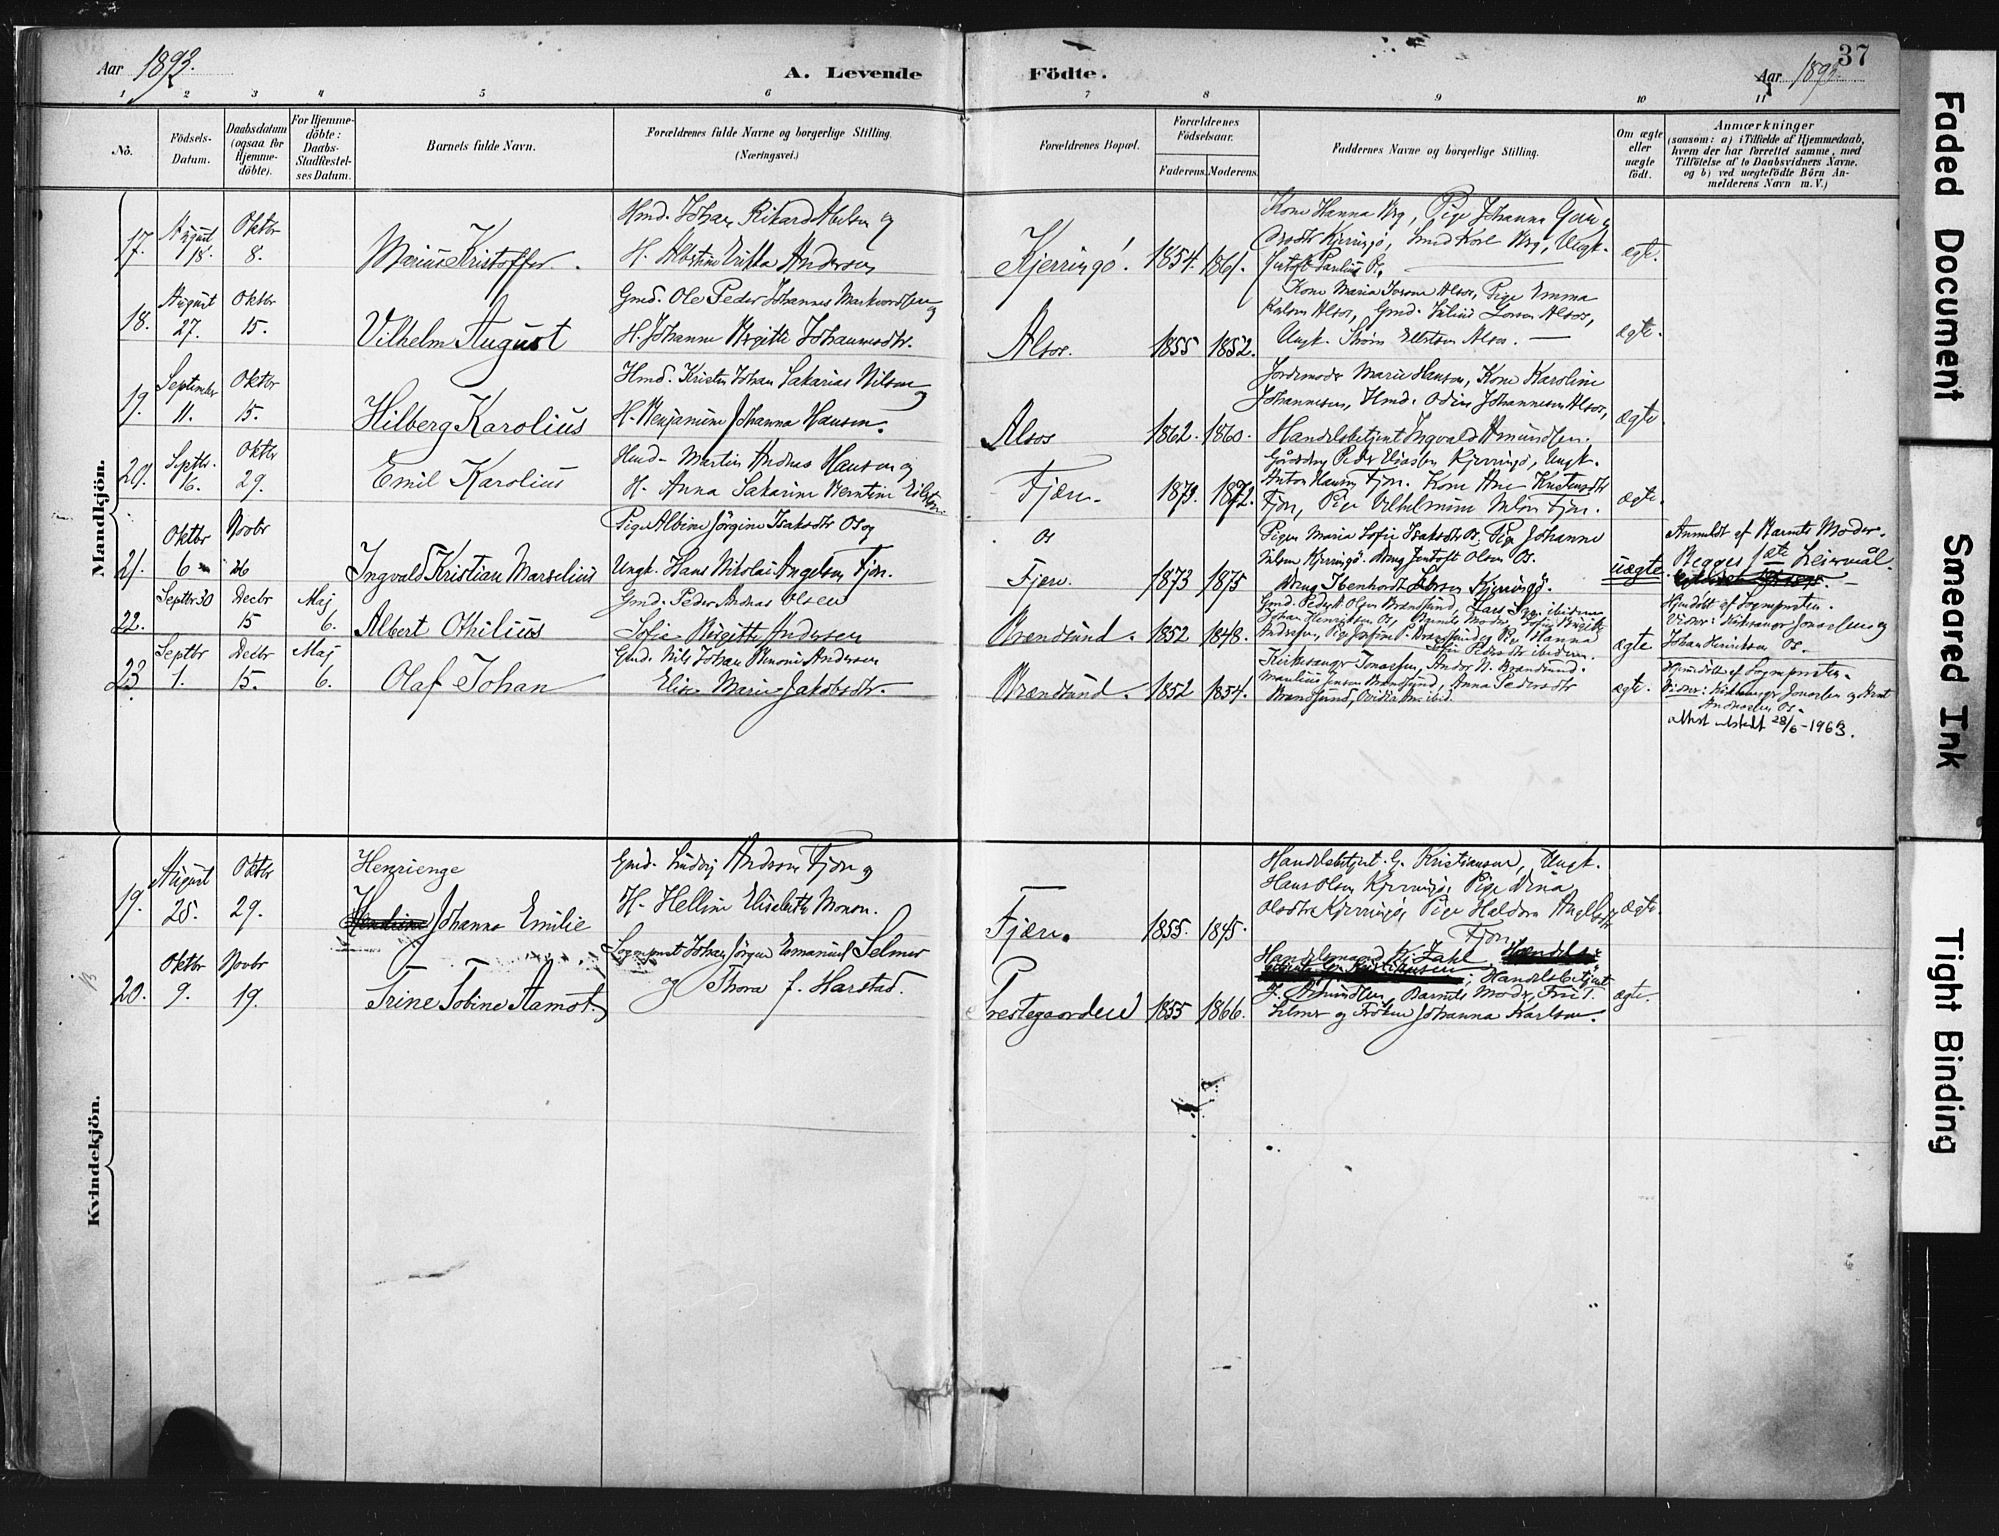 Aar 1893. A. Levende
Födte. Aar 1893. 37
1 2 3 4 5 6 7 8 9 10 11
No.
Födsels-
Datum.
Daabsdatum
(ogsaa for
Hjemme-
döbte).
For Hjemme-
döbte:
Daabs-
Stadfæstel-
ses Datum.
Barnets fulde Navn.
Forældrenes fulde Navne og borgerlige Stilling.
(Næringsvei.)
Forældrenes Bopæl.
Forældrenes
Födselsaar.
Faderens Moderens
Faddernes Navne og borgerlige Stilling.
Om ægte
eller
uægte
födt.
Anmærkninger
(saasom: a) i Tilfælde af Hjemmedaab,
hvem der har forrettet samme, med
Tilföielse af to Daabsvidners Navne.
og b) ved uægtefödte Börn An-
melderens Navn m. V.)
Mandkjön.
17.
August
18.
Oktbr
8.
Marius Kristoffer.
Hmd. Johan Rikard Abelsen og
H. Albertine Erikka Andersen
Kjerringö. 1854. 1861.
Kone Hanna Brg, Pige Johanna
Kjerringö, Karl Brg, Ungk.
Paulius
ægte.
18.
August
27.
Oktbr
15.
Vilhelm August
Gmd. Ole Peder Johannes Markvordsen
og
H. Johanne Birgitte Johannesdtr.
Alsos. 1855 1852.
Kone Maria Alsos, Pige Emma
Alsos, Gmd. Alsos,
Ungk. Alsos.
ægte.
19.
September
11.
Oktbr
15.
Hilberg Karolius
Hmd. Kristen Johan Sakarias Nilsen
og
H. Benjamine Johanna Hansen.
Alsos 1862. 1860.
Jordemoder Marie Hansen, Kone Karoline
Johannesen, Hmd. Odin Johannesen Alsos,
Handelsbetjent Ingvald Amundsen.
ægte.
20.
Septbr.
16.
Oktbr
29.
Emil Karolius
Hmd. Martin Andreas Hansen og
H. Anna Sakarine Berntine
Fjære. 1873. 1872.
Peder Eliassen Kjerringö, Ungk.
Anton Hansen Fjær. Kone Ane Kristensdtr
Fjær, Pige Vilhelmine Fjær.
ægte.
21.
Oktbr
6
Novbr
26
Ingvald Kristian Marselius
Pige Albine Jörgine Isaksdtr Os og
Ungk. Hans Nikolai Angelsen Fjær.
os
Fjære. 1873 1875
Pigen Maria Sofie Isaksdtr Os, Pige Johanne
Nilsen Kjerringö. Olsen Os.
Kjerringö.
uægte.
Anmeldt af Barnets Moder.
Begges 1ste Leiermaal.
22.
Septbr 30
Decbr
15
Maj
6.
Albert Othilius
Gmd. Peder Andreas Olsen
Sofie Birgitte Andersen
Brændsund. 1852 1848.
Gmd. Peder Olsen Brændsund, Lars ibidem
Johan Henriksen Os, Barnets Moder Sofie Birgitte
Andersen, Pige Brændsund og Pige Hanna
Pedersdtr ibidem.
ægte
Hjemdöbt af Sogneprsten.
Vidner: Kirkesanger Jonassen og
Johan Henriksen Os.
23.
Septbr
1.
Decbr
15.
Maj
6.
Olaf Johan
Gmd. Nils Johan Benoni Andersen
Elise Marie Jakobsdtr.
Brændsund. 1852 1854.
Kirkesanger Jonassen, Anders N. Brændsund.
Jensen Brændsund, Anna Pedersdtr
Brændsund, ibid.
ægte.
Hjemdöbt af Sogneprsten.
Vidner: Kirkesanger Jonassen og
Os.
attest utstedt 28/6-1963.
Kvindekjön.
19.
August
25.
Oktbr
29.
Henrienge
Johanna Emilie
Gmd. Ludvig Andersen Fjær og
H. Helline Elisabeth Monsen.
Fjære. 1855. 1845.
Handelsbetjent G. Kristiansen, Ungk.
Hans Olsen Kjerringö, Pige Dina
Olsdtr Kjerringö, Pige Haldora
Fjær
ægte.
20.
Oktbr
9.
Novbr
19.
Trine Tobine Aamot.
Sogneprest Johan Jörgen Emanuel Selmer
og Thora f. Harstad.
Prestegaarden 1855 1866.
Handelsmand Kr. Zahl,
Handelsbetjent
J. Amundsen, Barnets Moder, Fru T.
Selmer og Fröken Johanna Karlsen.
ægte.
Faded Document
Smeared Ink
Tight Binding